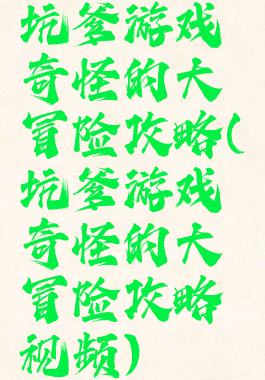 坑爹游戏
奇怪的大
冒险攻略(
坑爹游戏
奇怪的大
冒险攻略
视频)